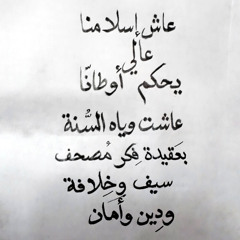 عاش إسلامنا
عالي
يحكم أوطانّا
عاشت وياه السُّنة
بعَقيدة فِكر مُصحف
سيف وخِلافة
ودِين وأَمان